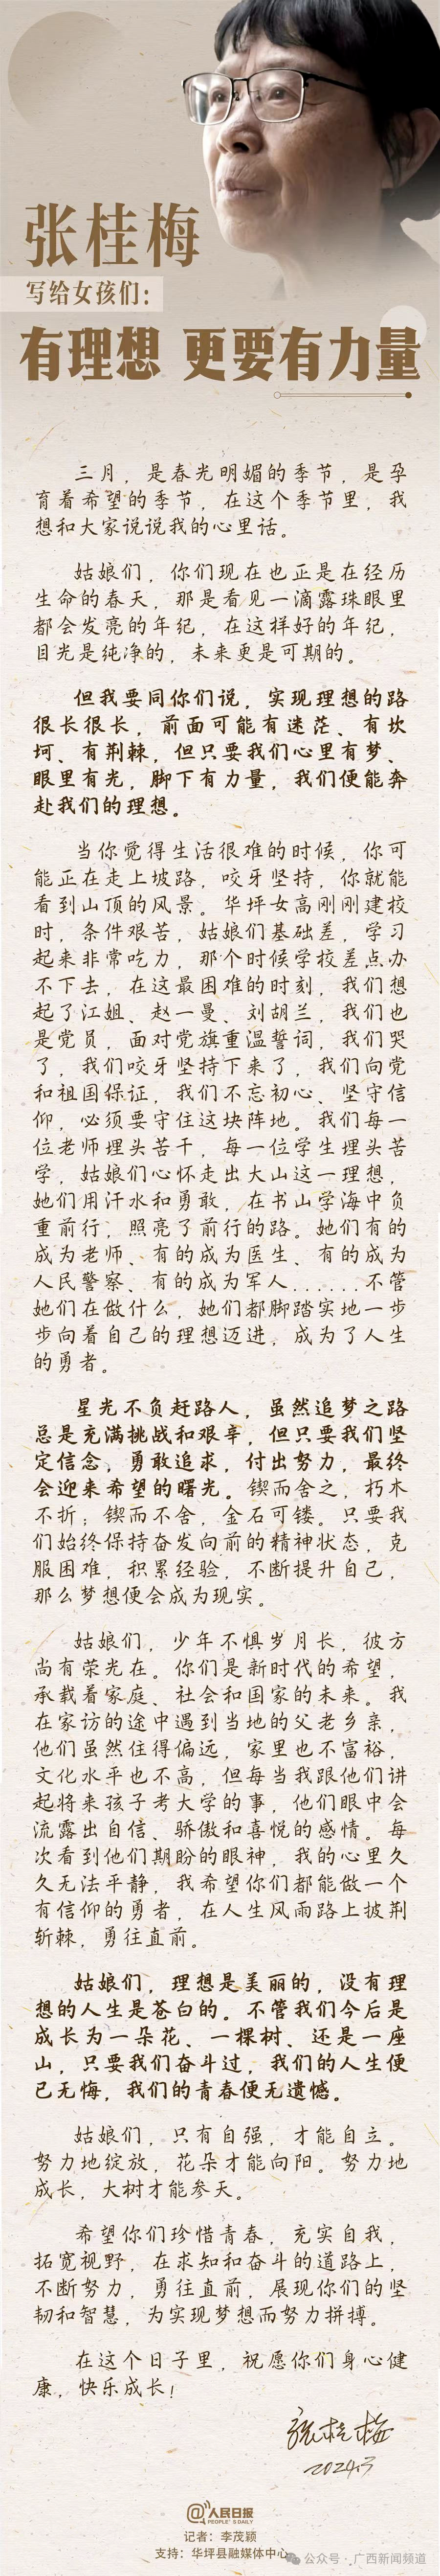 张桂梅
写给女孩们：
有理想 更要有力量
三月，是春光明媚的季节，是孕
育着希望的季节，在这个季节里，我
想和大家说说我的心里话。
姑娘们，你们现在也正是在经历
生命的春天，那是看见一滴露珠眼里
都会发亮的年纪，在这样好的年纪，
目光是纯净的，未来更是可期的。
但我要同你们说，实现理想的路
很长很长，前面可能有迷茫、有坎
坷、有荆棘，但只要我们心里有梦、
眼里有光，脚下有力量，我们便能奔
赴我们的理想。
当你觉得生活很难的时候，你可
能正在走上坡路，咬牙坚持，你就能
看到山顶的风景。华坪女高刚刚建校
时，条件艰苦，姑娘们基础差，学习
起来非常吃力，那个时候学校差点办
不下去，在这最困难的时刻，我们想
起了江姐、赵一曼、刘胡兰，我们也
是党员，面对党旗重温誓词，我们哭
了，我们咬牙坚持下来了，我们向党
和祖国保证，我们不忘初心、坚守信
仰，必须要守住这块阵地。我们每一
位老师埋头苦干，每一位学生埋头苦
学，姑娘们心怀走出大山这一理想，
她们用汗水和勇敢，在书山学海中负
重前行，照亮了前行的路。她们有的
成为老师、有的成为医生、有的成为
人民警察、有的成为军人......不管
她们在做什么，她们都脚踏实地一步
步向着自己的理想迈进，成为了人生
的勇者。
星光不负赶路人，虽然追梦之路
总是充满挑战和艰辛，但只要我们坚
定信念，勇敢追求，付出努力，最终
会迎来希望的曙光。锲而舍之，朽木
不折；锲而不舍，金石可镂。只要我
们始终保持奋发向前的精神状态，克
服困难，积累经验，不断提升自己，
那么梦想便会成为现实。
姑娘们，少年不惧岁月长，彼方
尚有荣光在。你们是新时代的希望，
承载着家庭、社会和国家的未来。我
在家访的途中遇到当地的父老乡亲，
他们虽然住得偏远，家里也不富裕，
文化水平也不高，但每当我跟他们讲
起将来孩子考大学的事，他们眼中会
流露出自信、骄傲和喜悦的感情。每
次看到他们期盼的眼神，我的心里久
久无法平静，我希望你们都能做一个
有信仰的勇者，在人生风雨路上披荆
斩棘，勇往直前。
姑娘们，理想是美丽的，没有理
想的人生是苍白的。不管我们今后是
成长为一朵花、一棵树、还是一座
山，只要我们奋斗过，我们的人生便
已无悔，我们的青春便无遗憾。
姑娘们，只有自强，才能自立。
努力地绽放，花朵才能向阳。努力地
成长，大树才能参天。
希望你们珍惜青春，充实自我，
拓宽视野，在求知和奋斗的道路上，
不断努力，勇往直前，展现你们的坚
韧和智慧，为实现梦想而努力拼搏。
在这个日子里，祝愿你们身心健
康，快乐成长！
张桂梅
2024.3
@人民日报
PEOPLE'S DAILY
记者：李茂颖
支持：华坪县融媒体中心
公众号·广西新闻频道